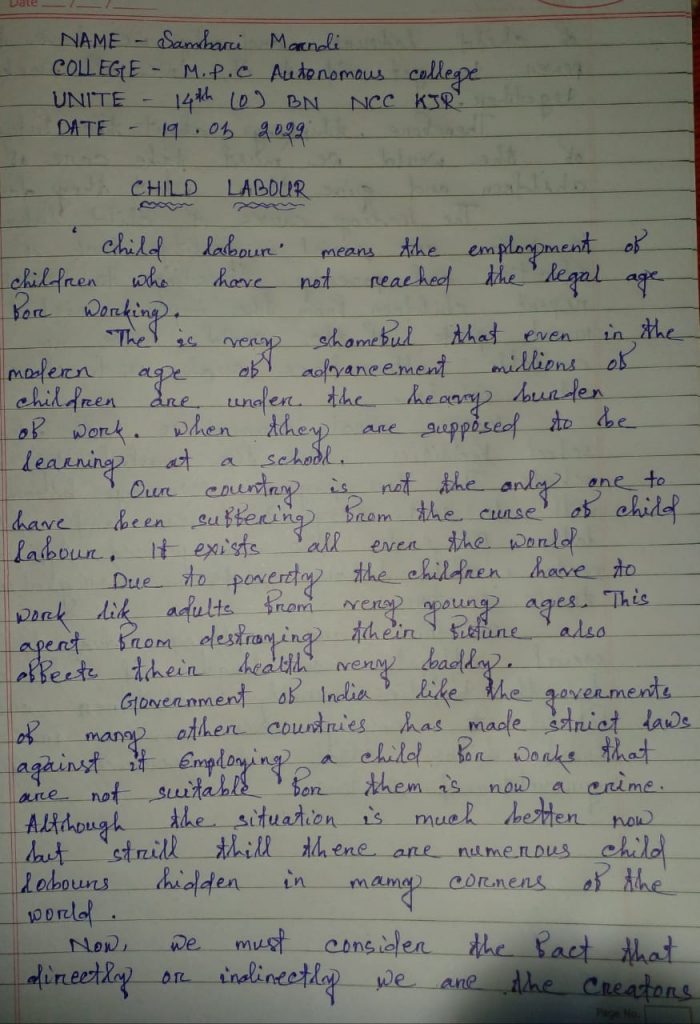 Date
NAME - Sambari Marndi
COLLEGE - M.P.C Autonomous college
UNITE - 14th (O) BN NCC KJR.
DATE - 19.03 2022
CHILD LABOUR
'Child labour' means the employment of
children who have not reached the legal age
for working.
The is very shameful that even in the
modern age of advancement millions of
children are under the heavy burden
of work. when they are supposed to be
learning at a school.
Our country is not the only one to
have been suffering from the curse of child
labour. It exists all over the world
Due to poverty the children have to
work lik adults from very young ages. This
apert from destroying their future also
affects their health very baddly.
Government of India like the goverments
of many other countries has made strict laws
against it Employing a child for works that
are not suitable for them is now a crime.
Although the situation is much better now
but strill thill there are numerous child
labours hidden in mamy corners of the
world.
Now, we must consider the fact that
directly or indirectly we are the creators
Page No.